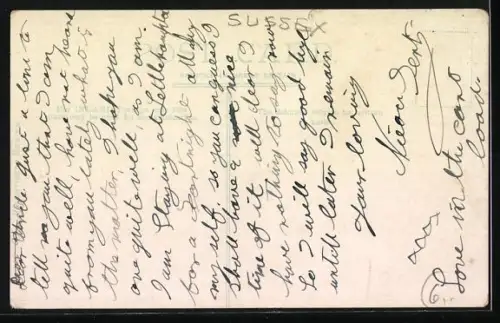 SUSSEX
Dear Uncle Just a line to
tell you that I am
quite well, have not heard
from you lately what is
the matter, I hope you
are quite well, as I am.
I am Staying at Littlehampton
for a fortnight all by
my self, so you can guess I
Shall have a nice
time of it well dear I
have nothing to say now
So I will say good bye
untill later I remain
Your loving
Niece Gert
xxx
Love in the cart
load.
6